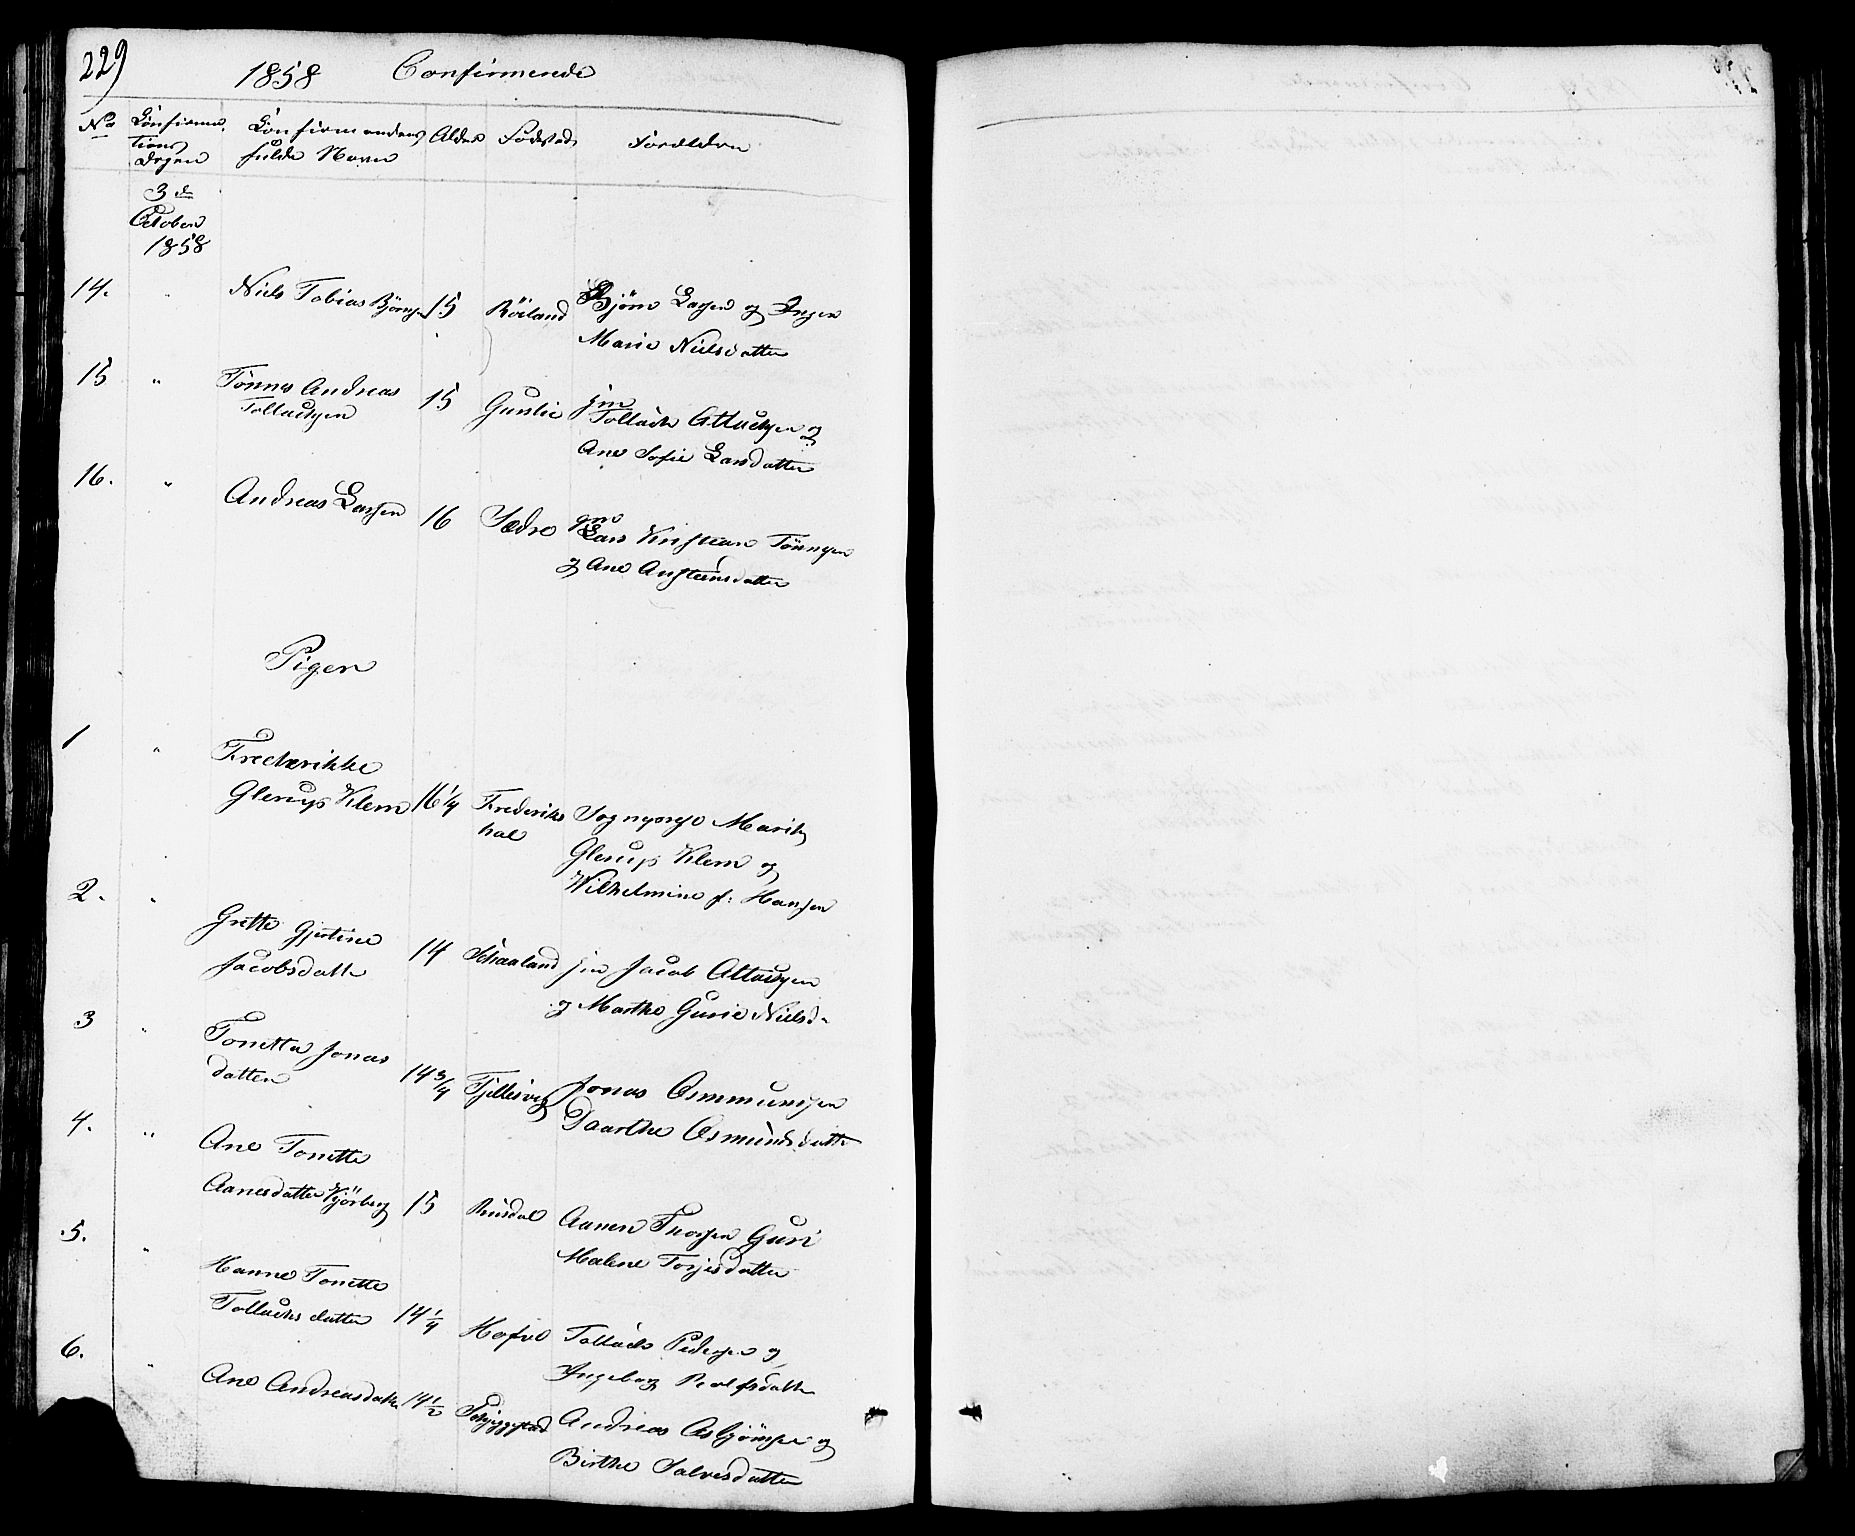 229
1858 Confirmerede
No Confirma- Confirmandens Alder Fødested Forældre
tions fulde Navn
Dagen
3 de
October
1858
14. " Niels Tobias Bjørnsen 15 Röiland Bjørn Larsen og Inger
Marie Nielsdatter
15 " Tönnes Andreas 15 Gunlie
Tollachsen Tollach Attachsen og
Ane Sofie Larsdatter
16. " Andreas Larsen 16 Sædre
Lars Kristian Tönnesen
og Ane Austeinsdatter
Piger
1 " Frederikke
Glerups Klem 16 1/4 Frederiks Sogneprest
hal Glerups Klem og
Wilhelmine f: Hansen
2. " Grette Gjertine
Jacobsdatter 14 Schaaland Jacob Attachsen
og Marthe Gurie Nielsd.
3 " Tonette Jonas
datter 14 3/4 Tjellesvig Jonas Osmunsen
Daarthe Osmundsdatter
4. " Ane Tonette
Aanesdatter Kjörberg 15 Rusdal Aanen Thorsen Guri
Malene Torjesdatter
.5. " Hanne Tonette
Tollachs datter 14 1/4 Hafve Tollach Pedersen og
Ingeborg Rolfsdatter
6. " Ane Andreasdatter 14 1/2 Andreas Asbjörnsen og
Birthe Salvesdatter